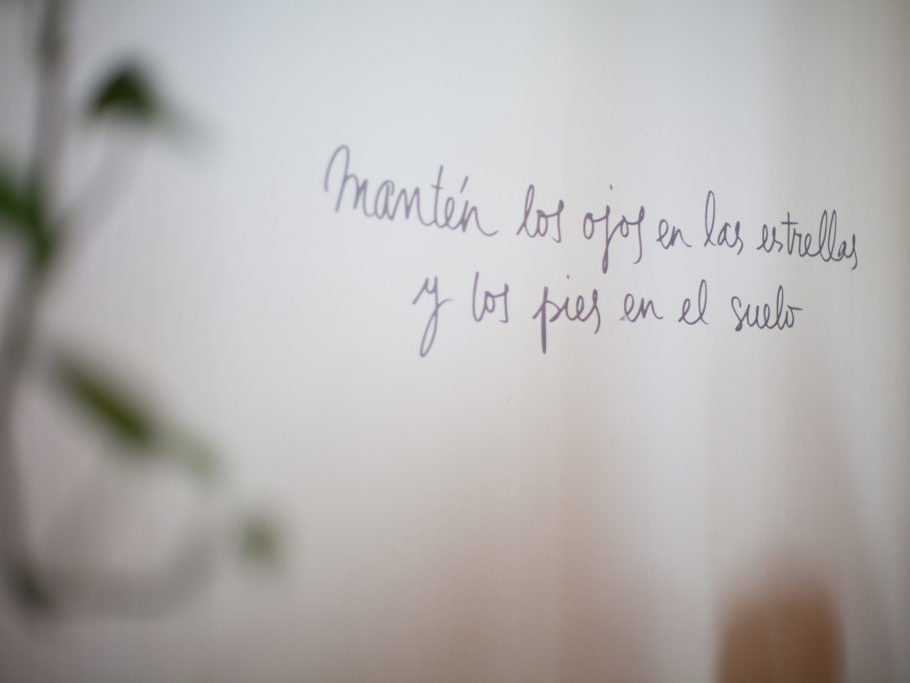 Mantén los ojos en las estrellas
y los pies en el suelo